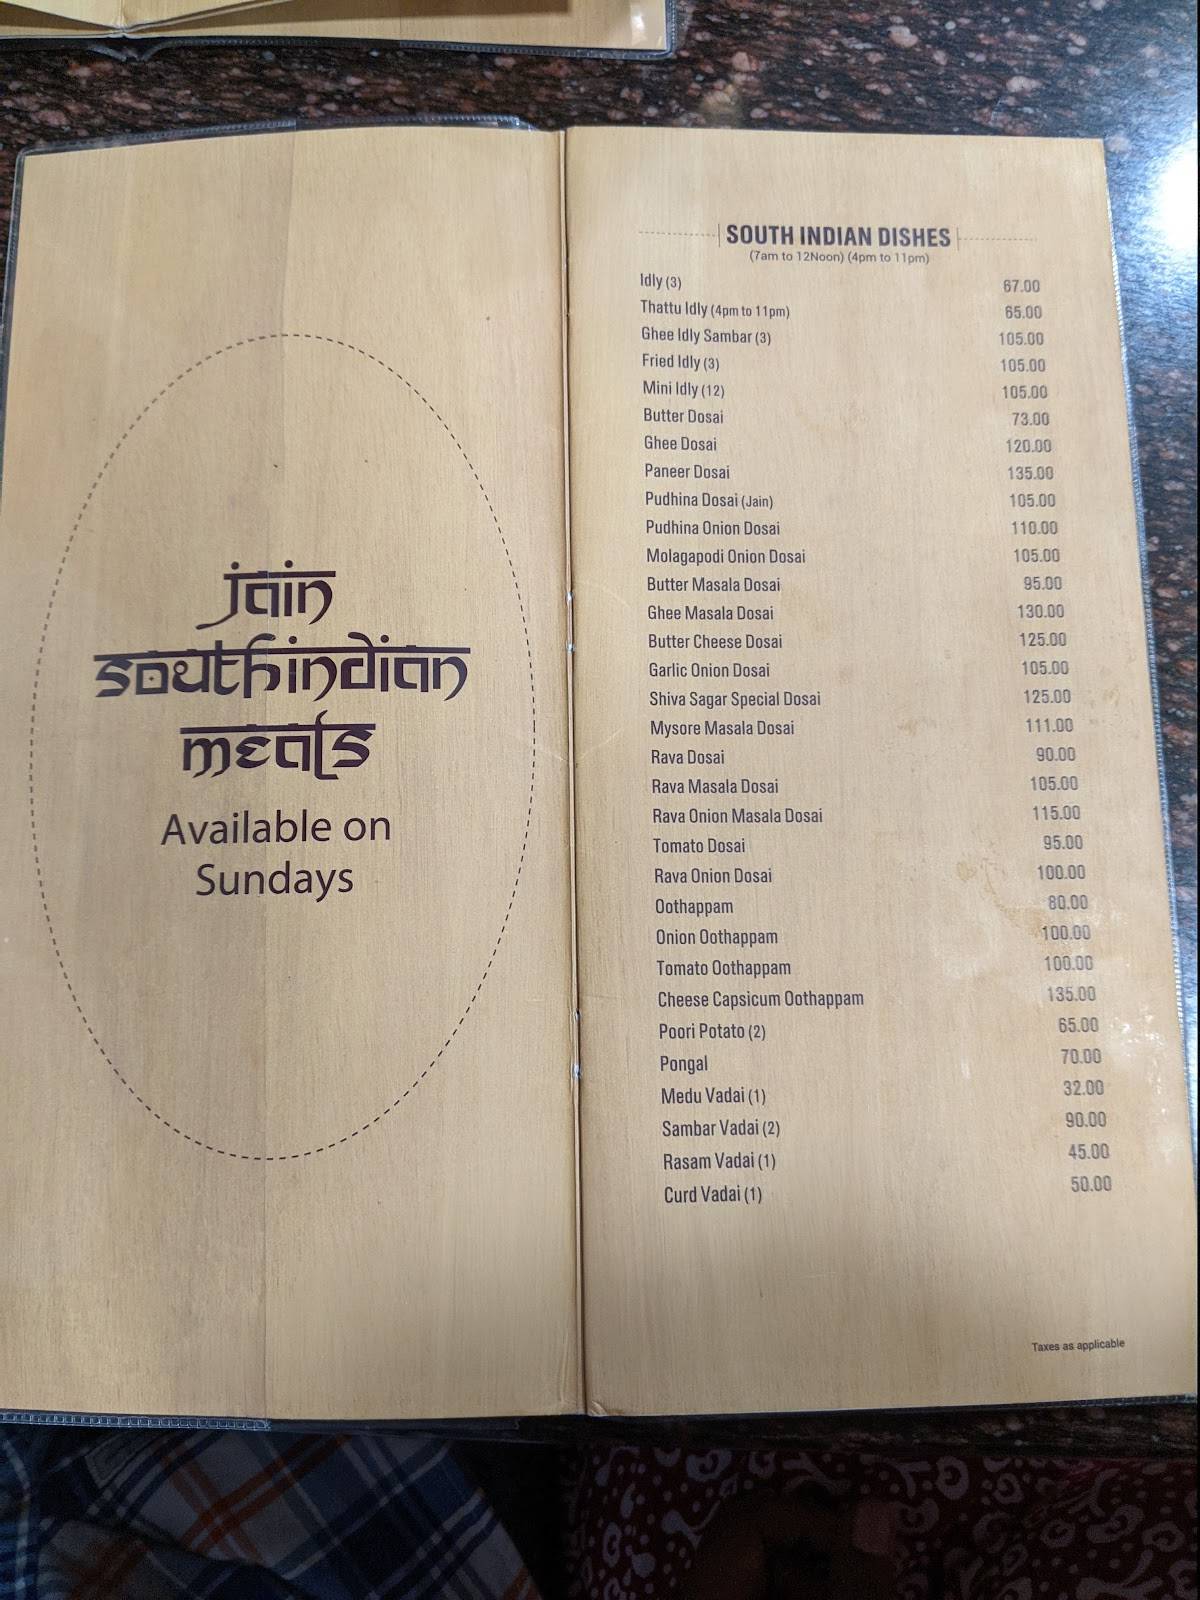 Jain
South indian
meals
Available on
Sundays
SOUTH INDIAN DISHES
(7am to 12Noon) (4pm to 11pm)
Idly (3) 67.00
Thattu Idly (4pm to 11pm) 65.00
Ghee Idly Sambar (3) 105.00
Fried Idly (3) 105.00
Mini Idly (12) 105.00
Butter Dosai 73.00
Ghee Dosai 120.00
Paneer Dosai 135.00
Pudhina Dosai (Jain) 105.00
Pudhina Onion Dosai 110.00
Molagapodi Onion Dosai 105.00
Butter Masala Dosai 95.00
Ghee Masala Dosai 130.00
Butter Cheese Dosai 125.00
Garlic Onion Dosai 105.00
Shiva Sagar Special Dosai 125.00
Mysore Masala Dosai 111.00
Rava Dosai 90.00
Rava Masala Dosai 105.00
Rava Onion Masala Dosai 115.00
Tomato Dosai 95.00
Rava Onion Dosai 100.00
Oothappam 80.00
Onion Oothappam 100.00
Tomato Oothappam 100.00
Cheese Capsicum Oothappam 135.00
Poori Potato (2) 65.00
Pongal 70.00
Medu Vadai (1) 32.00
Sambar Vadai (2) 90.00
Rasam Vadai (1) 45.00
Curd Vadai (1) 50.00
Taxes as applicable